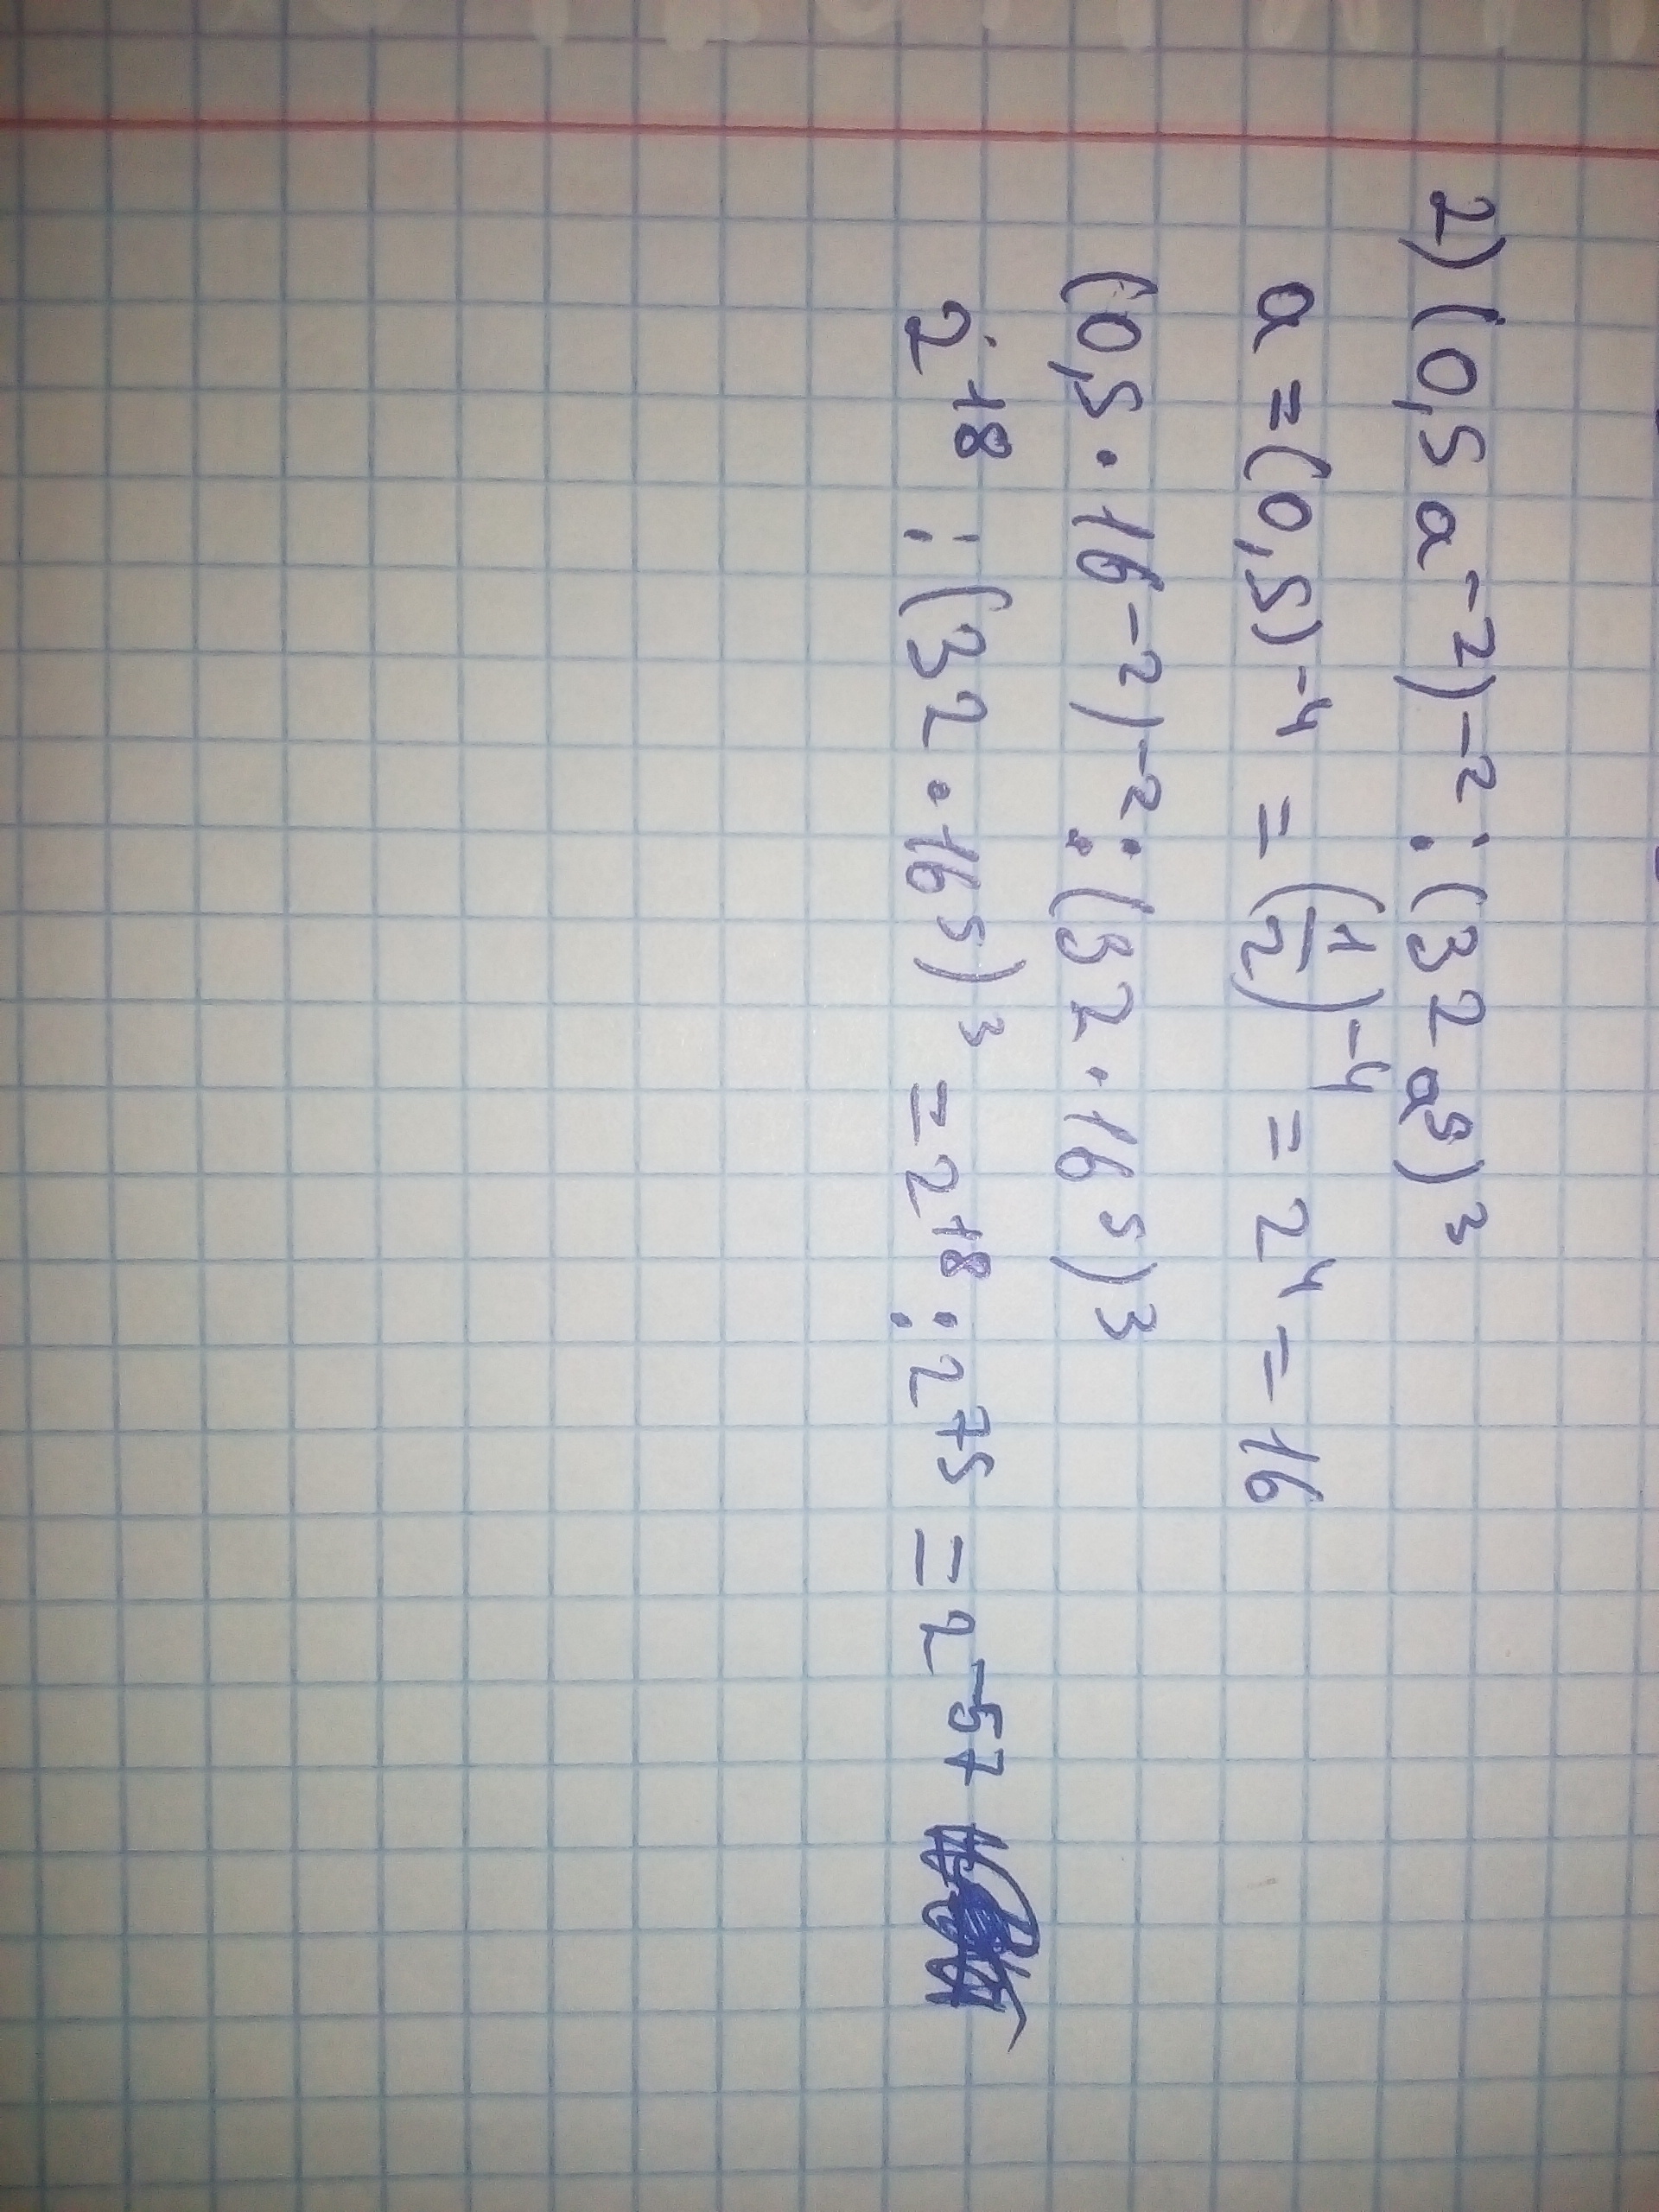 2) (0,5a⁻²)⁻² : (32a⁵)³
a = (0,5)⁻⁴ = (1/2)⁻⁴ = 2⁴ = 16
(0,5 · 16⁻²)⁻² : (32 · 16⁵)³
2¹⁸ : (32 · 16⁵)³ = 2¹⁸ : 2⁷⁵ = 2⁻⁵⁷